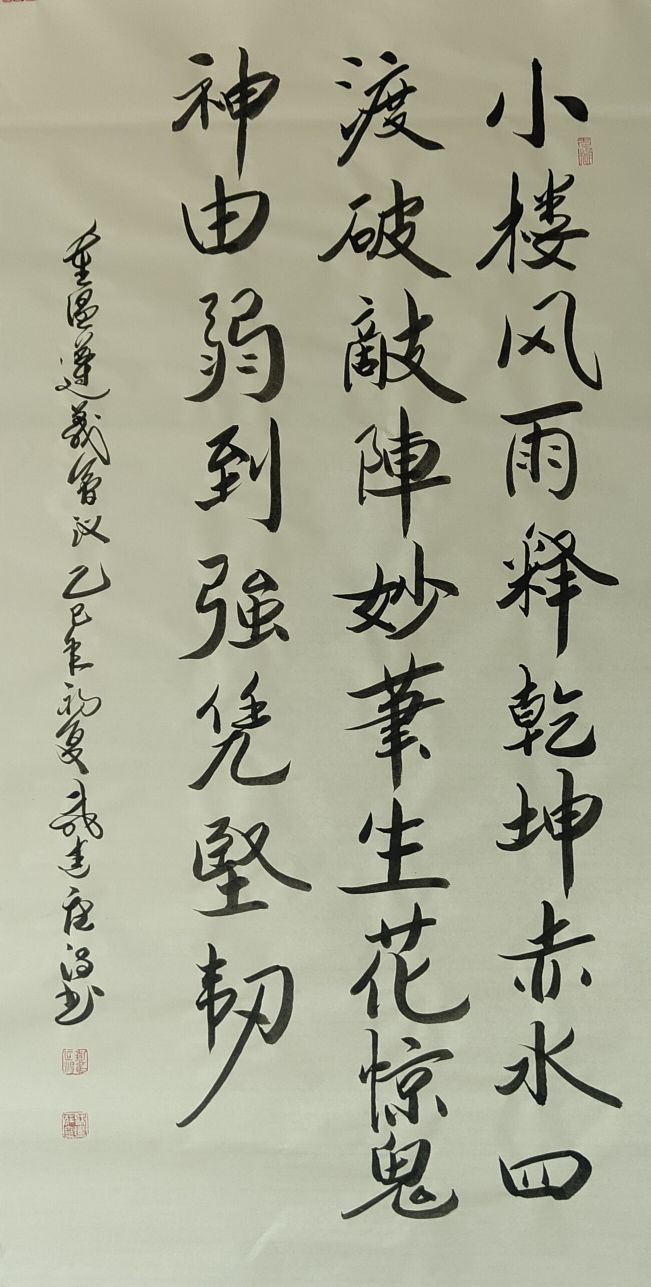 小楼风雨释乾坤赤水四
渡破敵陣妙筆生花惊鬼
神由弱到強凭堅韧
重温遵義會议乙巳年初夏建唐書